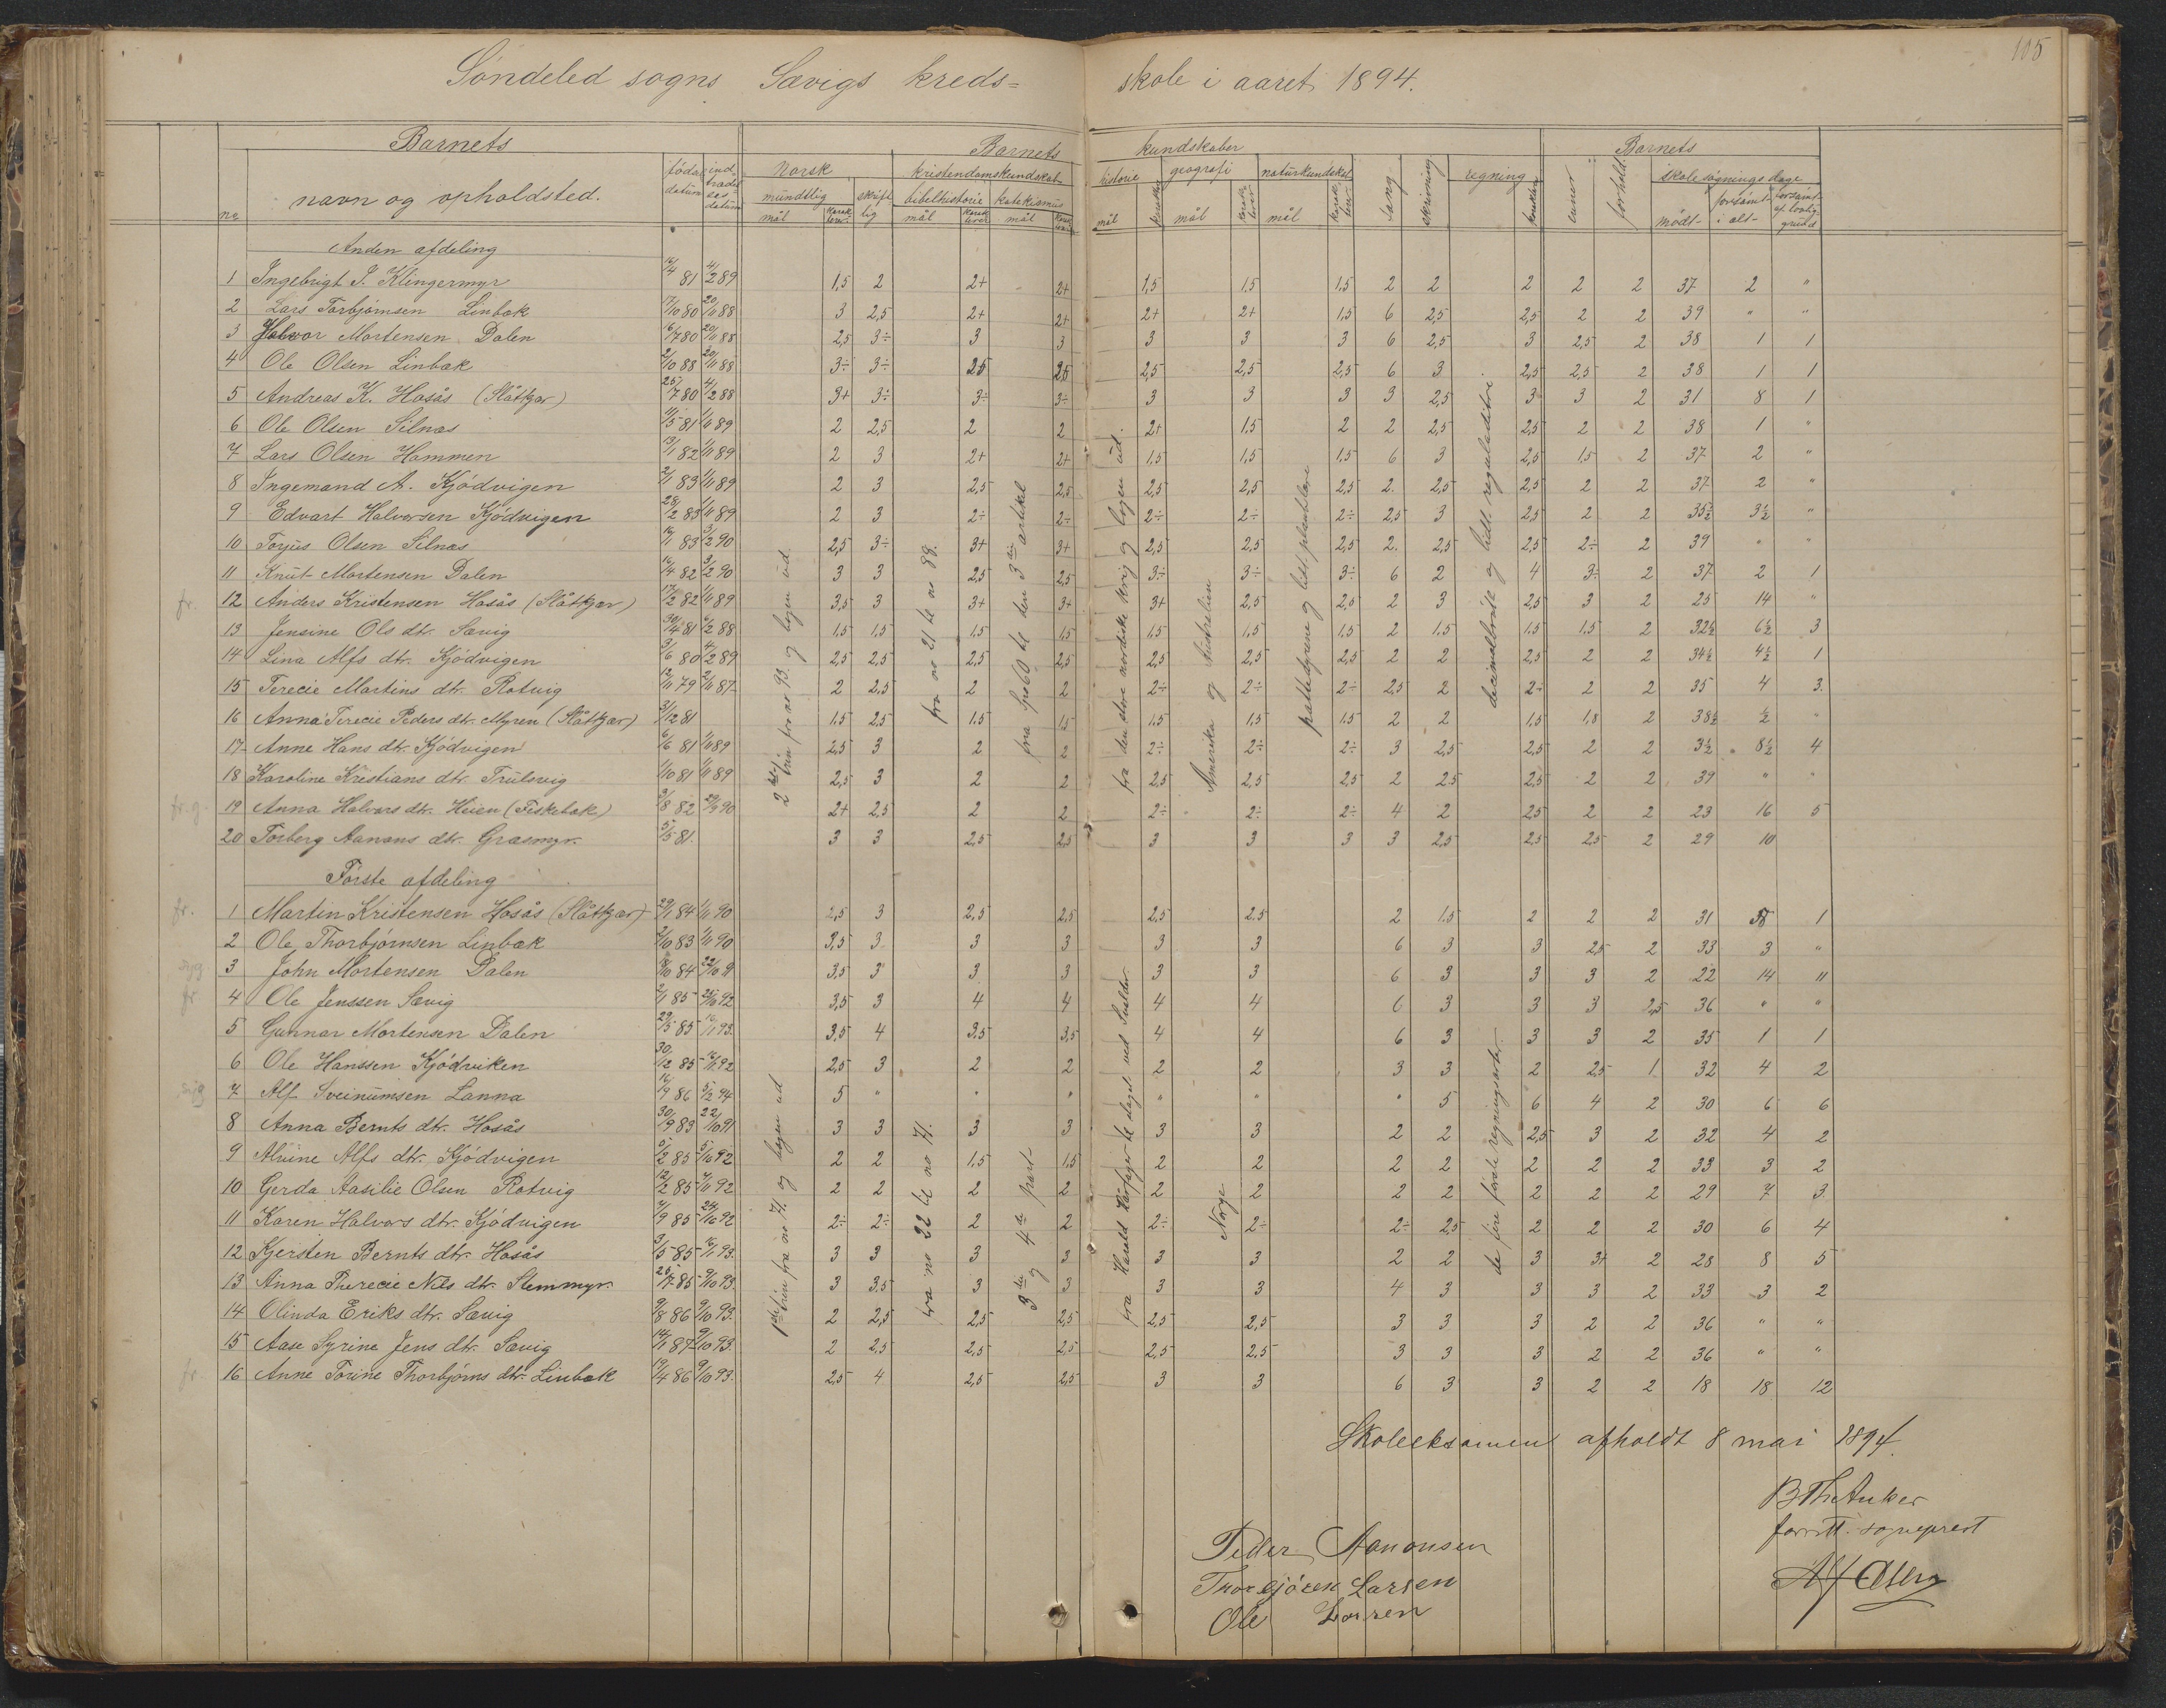 105
Söndeled sogns Sævigs kreds= skole i aaret 1894.
Barnets Barnets kundskaber Barnets
no navn og opholdsted. föds datum ind trædel ses datum Norsk kristendomskundskab historie geografi naturkundskab sang skrivning regning evner forhold skolesögningsdage
mündtlig skrift lig bibelhistorie katekismus mödt forsömt i alt forsömt af lovlig grund
mål karak terer mål karak terer mål mål karakter mål karak terer mål karak terer karakter
Anden afdeling
1 Ingebrigt I. Klingermyr 16/4 81 4/2 89 1,5 2 2+ 2+ 1,5 1,5 1,5 2 2 2 2 2 37 2 "
2 Lars Torbjörnsen Linbæk 17/10 80 20/11 88 3 2,5 2+ 2+ 2+ 2+ 1,5 6 2,5 2,5 2 2 39 " "
3 Halvor Mortensen Dalen 16/7 80 20/11 88 2,5 3÷ 3 3 3 3 3 6 2,5 3 2,5 2 38 1 1
4 Ole Olsen Linbæk 2/10 88 20/11 88 3÷ 3÷ 2,5 2,5 2,5 2,5 2,5 6 3 2,5 2,5 2 38 1 1
5 Andreas K. Hosås (Slåtkjær) 25/7 80 4/2 88 3+ 3÷ 3÷ 3÷ 3 3 3 3 2,5 3 3 2 31 8 1
6 Ole Olsen Silnæs 11/5 81 1/11 89 2 2,5 2 2 2+ 1,5 2 2 2,5 2,5 2 2 38 1 "
7 Lars Olsen Hammen 13/1 82 1/11 89 2 3 2+ 2+ 1,5 1,5 1,5 6 3 2,5 1,5 2 37 2 "
8 Ingemand A. Kjödvigen 2/1 83 1/11 89 2 3 2,5 2,5 2,5 2,5 2,5 2. 2,5 2,5 2 2 37 2 "
9 Edvart Halvorsen Kjödvigen 28/2 83 1/11 89 2 3 2÷ 2÷ 2÷ 2÷ 2÷ 2,5 3 2,5 2 2 35½ 3½ "
10 Torjus Olsen Silnæs 16/1 83 3/2 90 2,5 3÷ 3+ 3+ 2,5 2,5 2,5 2. 2,5 2,5 2÷ 2 39 " "
11 Knut Mortensen Dalen 16/4 82 3/2 90 3 3 2,5 2,5 3÷ 3÷ 3÷ 6 2 4 3÷ 2 37 2 1
fr. 12 Anders Kristensen Hosås (Slåtkjær) 17/2 82 1/11 89 3,5 3 3+ 3+ 3+ 2,5 2,5 2 3 2,5 3 2 25 14 "
13 Jensine Ols dtr. Sævig 30/4 81 6/2 88 1,5 1,5 1,5 1,5 1,5 1,5 1,5 2 1,5 1,5 1,5 2 32½ 6½ 3
14 Lina Alfs dtr. Kjödvigen 3/6 80 4/2 89 2,5 2,5 2,5 2,5 2,5 2,5 2,5 2 2 2,5 2 2 34½ 4½ 1
15 Terecie Martins dtr. Rotvig 12/11 79 2/11 87 2 2,5 2 2 2÷ 2÷ 2÷ 2,5 2 2÷ 2 2 35 4 3.
16 Anna Terecie Peders dtr. Myren (Slåtkjær) 3/12 81 1,5 2,5 1,5 1,5 1,5 1,5 1,5 2 2 1,5 1,8 2 38½ ½ "
17 Anne Hans dtr. Kjödvigen 6/6 81 1/11 89 2,5 3 2 2 2÷ 2÷ 2÷ 3 2,5 2,5 2 2 3½ 8½ 4
18 Karoline Kristians dtr. Trülsvig 1/10 81 1/11 89 2,5 3 2 2 2,5 2,5 2,5 2 2,5 2,5 2 2 39 " "
fr.g. 19 Anna Halvors dtr. Heien (Fiskebæk) 3/8 82 29/9 90 2+ 2,5 2 2 2÷ 2÷ 2÷ 4 2 2,5 2 2 23 16 5
20 Torberg Aanons dtr. Græsmyr. 5/5 81. 3 3 2,5 2,5 3 3 3 3 2,5 2,5 2,5 2 29 10
2det trin fra no 93. og bogen ud
fra no 21 til no 88.
fra sps 60 til den 3die artikel
fra den store nordiske krig og bogen ud.
Amerika og Australien
pattedyrene og lidt plantelære
decimalbrök og lidt reguladetri
Förste afdeling
fr. 1 Martin Kristensen Hosås (Slåtkjær) 29/1 84 1/11 90 2,5 3 2,5 2,5 2,5 2,5 2 1,5 2 2 2 31 8 1
2 Ole Thorbjörnsen Linbæk 2/10 83 1/11 90 3,5 3 3 3 3 3 6 3 3 2,5 2 33 3 "
syg 3 John Mortensen Dalen 18/10 84 22/10 91 3,5 3 3 3 3 3 6 3 3 3 2 22 14 11
fr 4 Ole Jenssen Sævig 2/1 85 24/10 92 3,5 3 4 4 4 4 6 3 3 3 2,5 36 " "
5 Gunnar Mortensen Dalen 29/5 85 16/1 93. 3,5 4 3,5 3,5 4 4 6 3 3 3 2 35 1 1
6 Ole Hanssen Kjödviken 30/12 85 14/11 92 2,5 3 2 2 2 2 3 3 2 2,5 1 32 4 2
syg 7 Alf Sveinümsen Lanna 16/9 86 5/2 94 5 " " " " " " 5 6 4 2 30 6 6
8 Anna Bernts dtr. Hosås 30/9 83 22/10 91 3 3 3 3 3 3 2 2 2,5 3 2 32 4 2
9 Alvine Alfs dtr. Kjödvigen 5/2 85 5/10 92 2 2 1,5 1,5 2 2 2 2 2 2 2 33 3 2
10 Gerda Aasilie Olsen Rotvig 12/2 85 7/11 92 2 2 2 2 2 2 2 2 2 2 2 29 7 3.
11 Karen Halvors dtr. Kjödvigen 4/9 85 24/10 92 2÷ 2÷ 2 2 2÷ 2÷ 2÷ 2,5 2 2 2 30 6 4
12 Kjersten Bernts dtr. Hosås 3/5 85 16/1 93. 3 3 3 3 3 3 2 2 3 3+ 2 28 8 5
13 Anna Therecie Nils dtr. Stemmyr. 25/7 85 9/10 93. 3 3,5 3 3 3 3 4 3 3 3 2 33 3 2
14 Olinda Eriks dtr. Sævig 9/8 86 9/10 93. 2 2,5 2,5 2,5 2,5 2,5 3 3 3 2 2 36 " "
15 Aase Syrine Jens dtr. Sævig 14/1 87 9/10 93. 2 2,5 2,5 2,5 2,5 2,5 3 3 3 2 2 36 " "
fr. 16 Anne Torine Thorbjörns dtr. Linbæk 19/4 86 9/10 93. 2,5 4 2,5 2,5 3 3 6 3 3 2 2 18 18 12
1ste trin fra no 71. og bogen ud
fra no 22 til no 71.
3die og 4de part
fra Harald Hårfager til slaget ved Svolder.
Norge
de fire förste regningsarter.
Skoleeksamen afholdt 8 mai 1894.
B Th Anker
forrett. sogneprest
Peder Aanonsen
Thorbjören Larsen
Ole Larsen
Alf Olsen